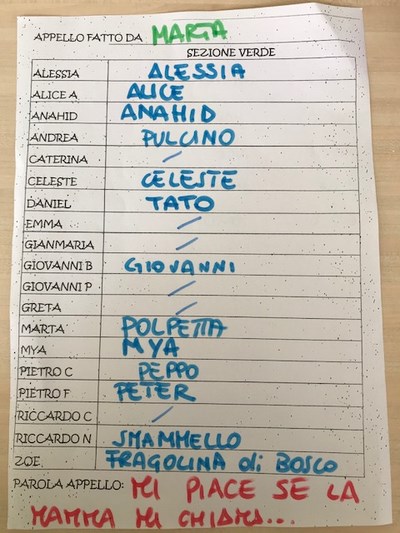 APPELLO FATTO DA MARTA
SEZIONE VERDE
ALESSIA ALESSIA
ALICE A ALICE
ANAHID ANAHID
ANDREA PULCINO
CATERINA /
CELESTE CELESTE
DANIEL TATO
EMMA /
GIANMARIA /
GIOVANNI B GIOVANNI
GIOVANNI P /
GRETA /
MARTA POLPETTA
MYA MYA
PIETRO C PEPPO
PIETRO F PETER
RICCARDO C /
RICCARDO N SMAMMELLO
ZOE FRAGOLINA di BOSCO
PAROLA APPELLO: MI PIACE SE LA
MAMMA MI CHIAMA...